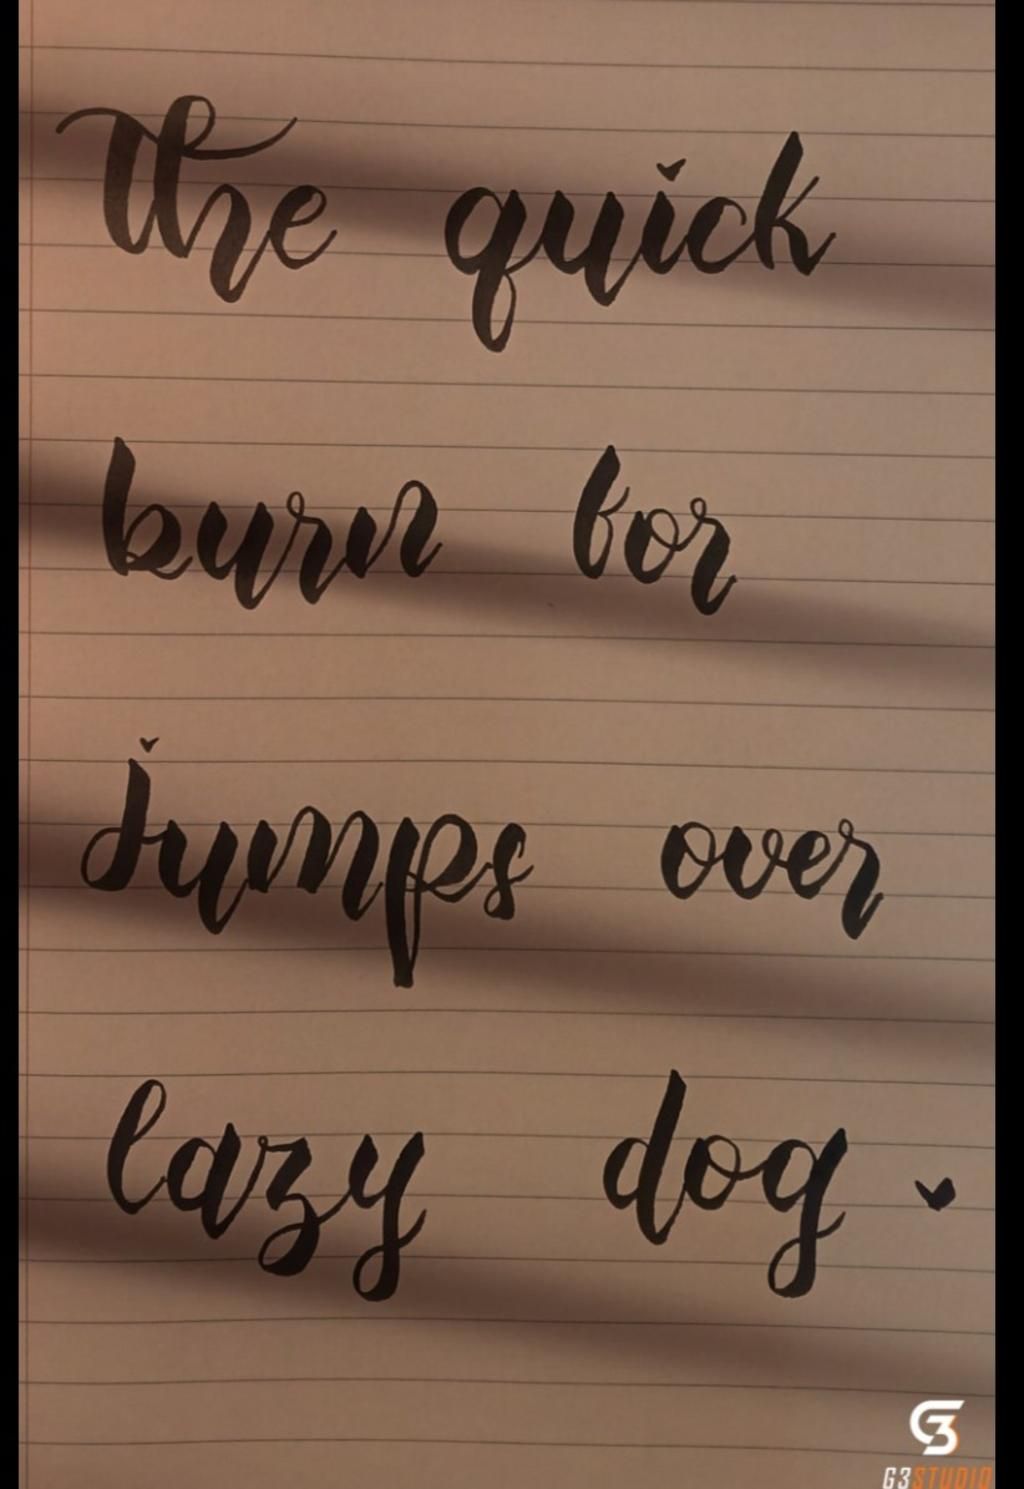 The quick
burn for
jumps over
lazy dog.
G3STUDIO